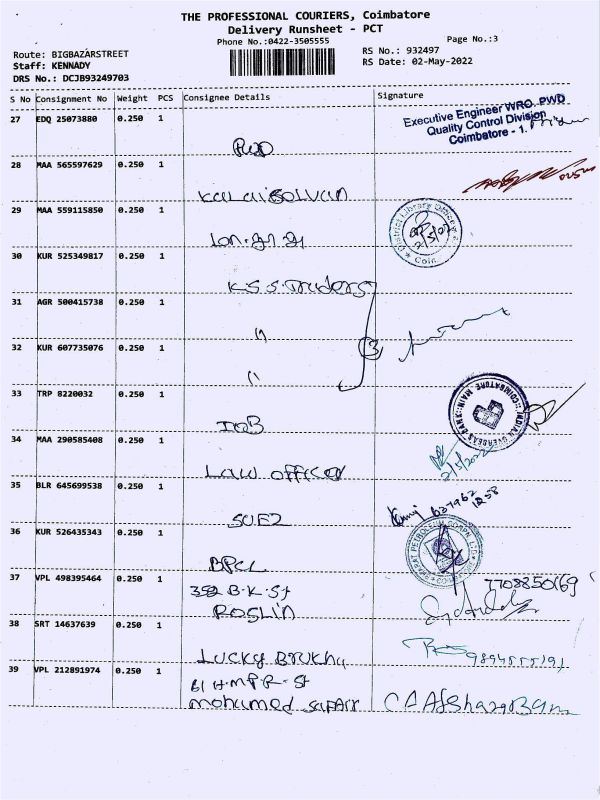 THE PROFESSIONAL COURIERS, Coimbatore
Delivery Runsheet - PCT
Phone No.:0422-3505555
Page No.:3
Route: BIGBAZARSTREET
RS No.: 932497
Staff: KENNADY
RS Date: 02-May-2022
DRS No.: DCJB93249703
S No Consignment No Weight PCS Consignee Details Signature
27 EDQ 25073880 0.250 1
Executive Engineer WRO, PWD
Quality Control Division
Coimbatore - 1.
PWD
28 MAA 565597629 0.250 1
Kalaiselvan
29 MAA 559115850 0.250 1
District Library Officer
2/5/22
30 KUR 525349817 0.250 1
K.S.S. Traders
31 AGR 500415738 0.250 1
"
32 KUR 607735076 0.250 1
3
"
33 TRP 8220032 0.250 1
INDIAN OVERSEAS BANK
COIMBATORE MAIN
IOB
34 MAA 290585408 0.250 1
2/5/22
Law officer
35 BLR 645699538 0.250 1
627962
12.58
SUEZ
36 KUR 526435343 0.250 1
BHARAT PETROLEUM CORPN. LTD
BPCL
37 VPL 498395464 0.250 1
352 B.K. St
7708350169
ROSLIN
38 SRT 14637639 0.250 1
Lucky
39 VPL 212891974 0.250 1
61 H.M.P.R. St
mohamed